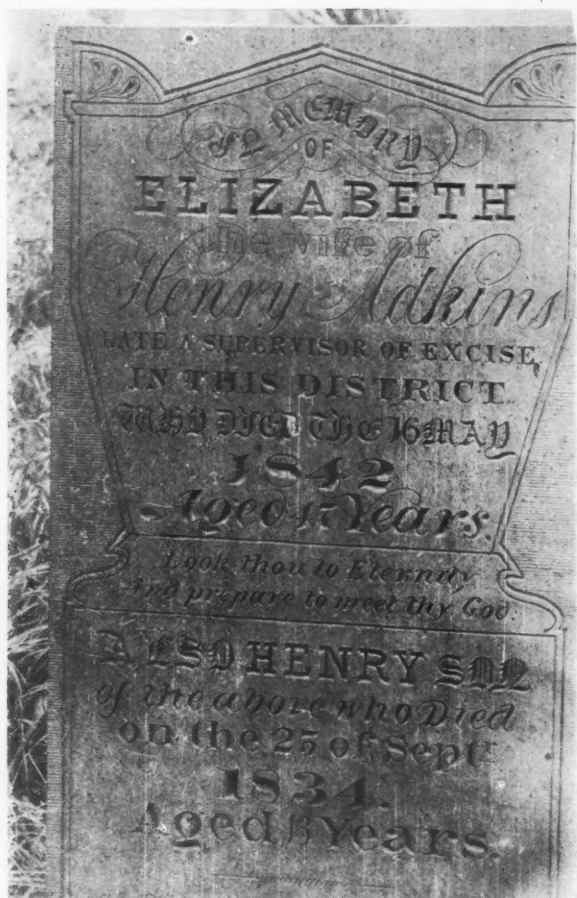 IN MEMORY
OF
ELIZABETH
the wife of
Henry Adkins
LATE A SUPERVISOR OF EXCISE
IN THIS DISTRICT
WHO DIED THE 16 MAY
1842
Aged 47 Years.
Look thou to Eternity
And prepare to meet thy God.
ALSO HENRY SON
of the above who Died
on the 25 of Septr
1834.
Aged Years.